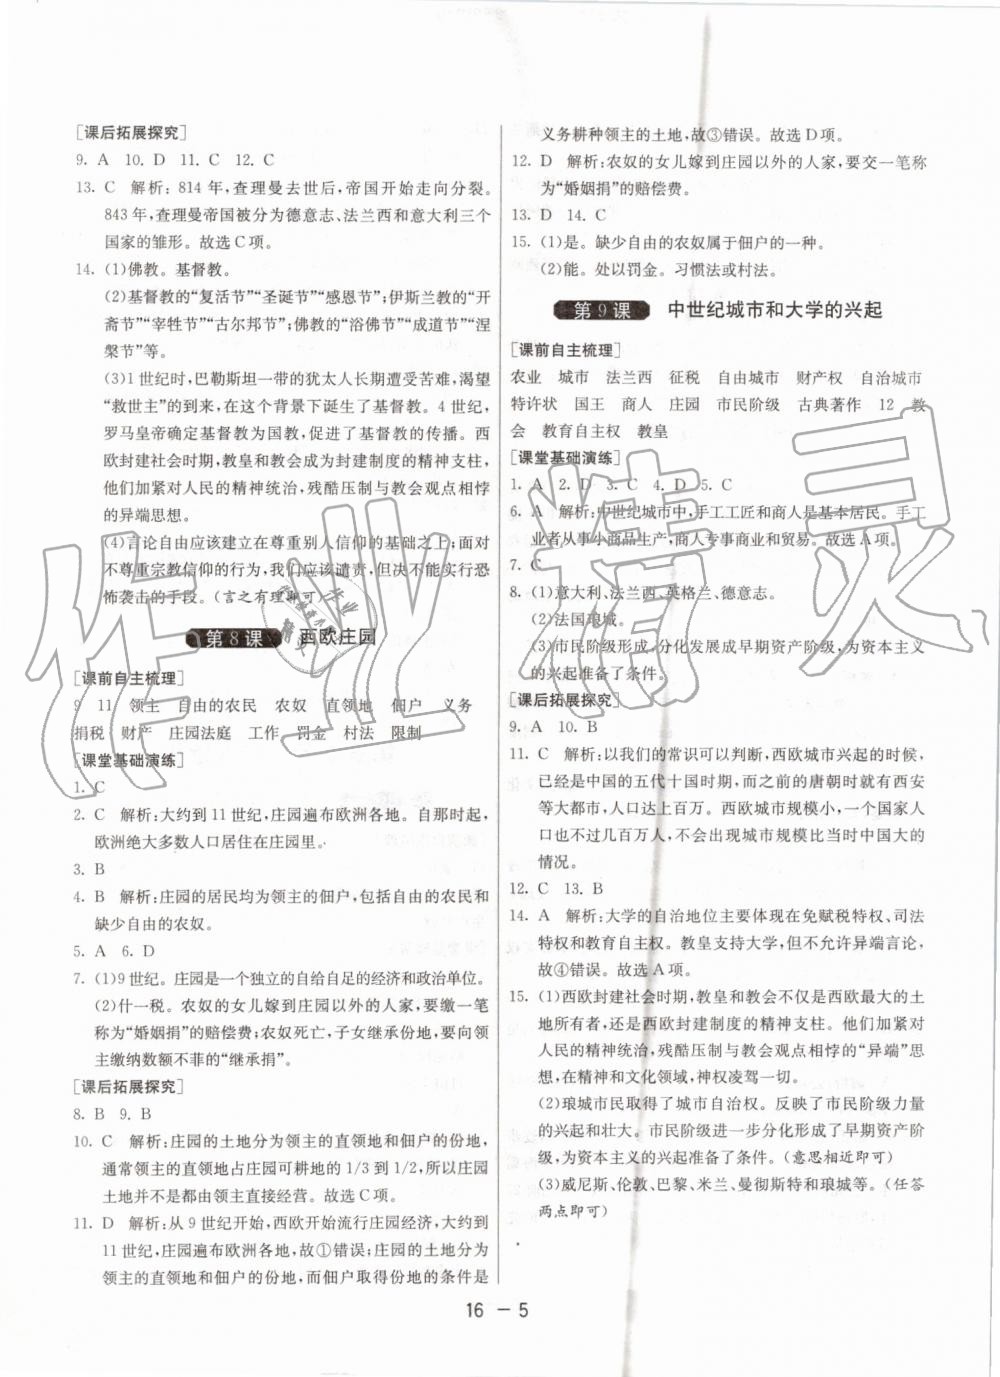 [课后拓展探究]
9. A  10. D  11. C  12. C
13. C  解析:814年,查理曼去世后,帝国开始走向分裂。
843年,查理曼帝国被分为德意志、法兰西和意大利三个
国家的雏形。故选C项。
14. (1)佛教。基督教。
(2)基督教的“复活节”“圣诞节”“感恩节”;伊斯兰教的“开
斋节”“宰牲节”“古尔邦节”;佛教的“浴佛节”“成道节”“涅
槃节”等。
(3)1世纪时,巴勒斯坦一带的犹太人长期遭受苦难,渴望
“救世主”的到来,在这个背景下诞生了基督教。4世纪,
罗马皇帝确定基督教为国教,促进了基督教的传播。西
欧封建社会时期,教皇和教会成为封建制度的精神支柱,
他们加紧对人民的精神统治,残酷压制与教会观点相悖
的异端思想。
(4)言论自由应该建立在尊重别人信仰的基础之上;面对
不尊重宗教信仰的行为,我们应该谴责,但决不能实行恐
怖袭击的手段。(言之有理即可)
第8课  西欧庄园
[课前自主梳理]
9  11  领主  自由的农民  农奴  直领地  佃户  义务
捐税  财产  庄园法庭  工作  罚金  村法  限制
[课堂基础演练]
1. C
2. C  解析:大约到11世纪,庄园遍布欧洲各地。自那时起,
欧洲绝大多数人口居住在庄园里。
3. B
4. B  解析:庄园的居民均为领主的佃户,包括自由的农民和
缺少自由的农奴。
5. A  6. D
7. (1)9世纪。庄园是一个独立的自给自足的经济和政治单位。
(2)什一税。农奴的女儿嫁到庄园以外的人家,要缴一笔
称为“婚姻捐”的赔偿费;农奴死亡,子女继承份地,要向领
主缴纳数额不菲的“继承捐”。
[课后拓展探究]
8. B  9. B
10. C  解析:庄园的土地分为领主的直领地和佃户的份地,
通常领主的直领地占庄园可耕地的1/3到1/2,所以庄园
土地并不是都由领主直接经营。故选C项。
11. D  解析:从9世纪开始,西欧开始流行庄园经济,大约到
11世纪,庄园遍布欧洲各地,故①错误;庄园的土地分为
领主的直领地和佃户的份地,而佃户取得份地的条件是
义务耕种领主的土地,故③错误。故选D项。
12. D  解析:农奴的女儿嫁到庄园以外的人家,要交一笔称
为“婚姻捐”的赔偿费。
13. D  14. C
15. (1)是。缺少自由的农奴属于佃户的一种。
(2)能。处以罚金。习惯法或村法。
第9课  中世纪城市和大学的兴起
[课前自主梳理]
农业  城市  法兰西  征税  自由城市  财产权  自治城市
特许状  国王  商人  庄园  市民阶级  古典著作  12  教
会  教育自主权  教皇
[课堂基础演练]
1. A  2. D  3. C  4. D  5. C
6. A  解析:中世纪城市中,手工工匠和商人是基本居民。手工
业者从事小商品生产,商人专事商业和贸易。故选A项。
7. C
8. (1)意大利、法兰西、英格兰、德意志。
(2)法国琅城。
(3)市民阶级形成,分化发展成早期资产阶级,为资本主义
的兴起准备了条件。
[课后拓展探究]
9. A  10. B
11. C  解析:以我们的常识可以判断,西欧城市兴起的时候,
已经是中国的五代十国时期,而之前的唐朝时就有西安
等大都市,人口达上百万。西欧城市规模小,一个国家人
口也不过几百万人,不会出现城市规模比当时中国大的
情况。
12. C  13. B
14. A  解析:大学的自治地位主要体现在免赋税特权、司法
特权和教育自主权。教皇支持大学,但不允许异端言论,
故④错误。故选A项。
15. (1)西欧封建社会时期,教皇和教会不仅是西欧最大的土
地所有者,还是西欧封建制度的精神支柱。他们加紧对
人民的精神统治,残酷压制与教会观点相悖的“异端”思
想,在精神和文化领域,神权凌驾一切。
(2)琅城市民取得了城市自治权。反映了市民阶级力量
的兴起和壮大。市民阶级进一步分化形成了早期资产阶
级,为资本主义的兴起准备了条件。(意思相近即可)
(3)威尼斯、伦敦、巴黎、米兰、曼彻斯特和琅城等。(任答
两点即可)
16 － 5
作业精灵